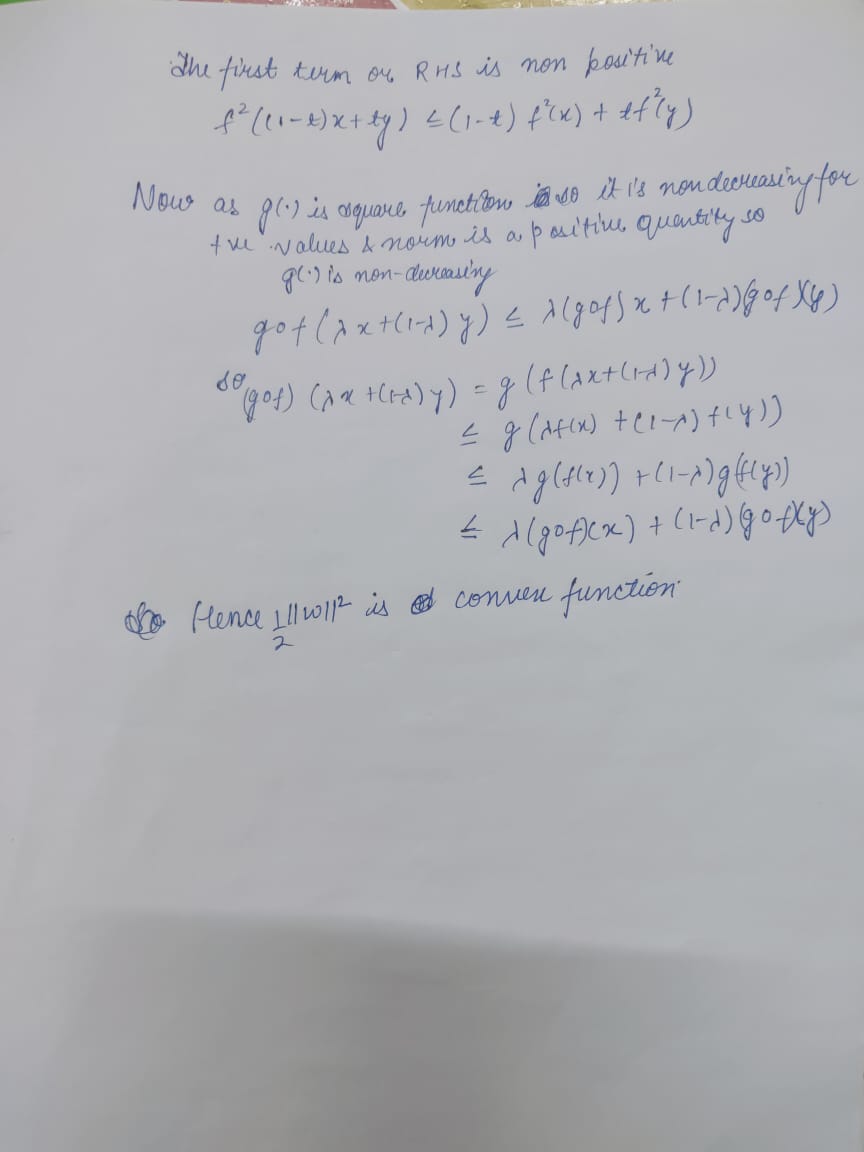 The first term on RHS is non positive
f²((1-t)x+ty) ≤ (1-t) f²(x) + tf²(y)
Now as g(.) is square function so it is nondecreasing for
+ve values & norm is a positive quantity so
g(.) is non-decreasing
gof(λx+(1-λ)y) ≤ λ(gof)x+(1-λ)(gof)(y)
so (gof) (λx+(1-λ)y) = g(f(λx+(1-λ)y))
≤ g(λf(x) + (1-λ)f(y))
≤ λg(f(x)) + (1-λ)g(f(y))
≤ λ(gof)(x) + (1-λ)(gof)(y)
Hence 1/2||w||² is convex function.